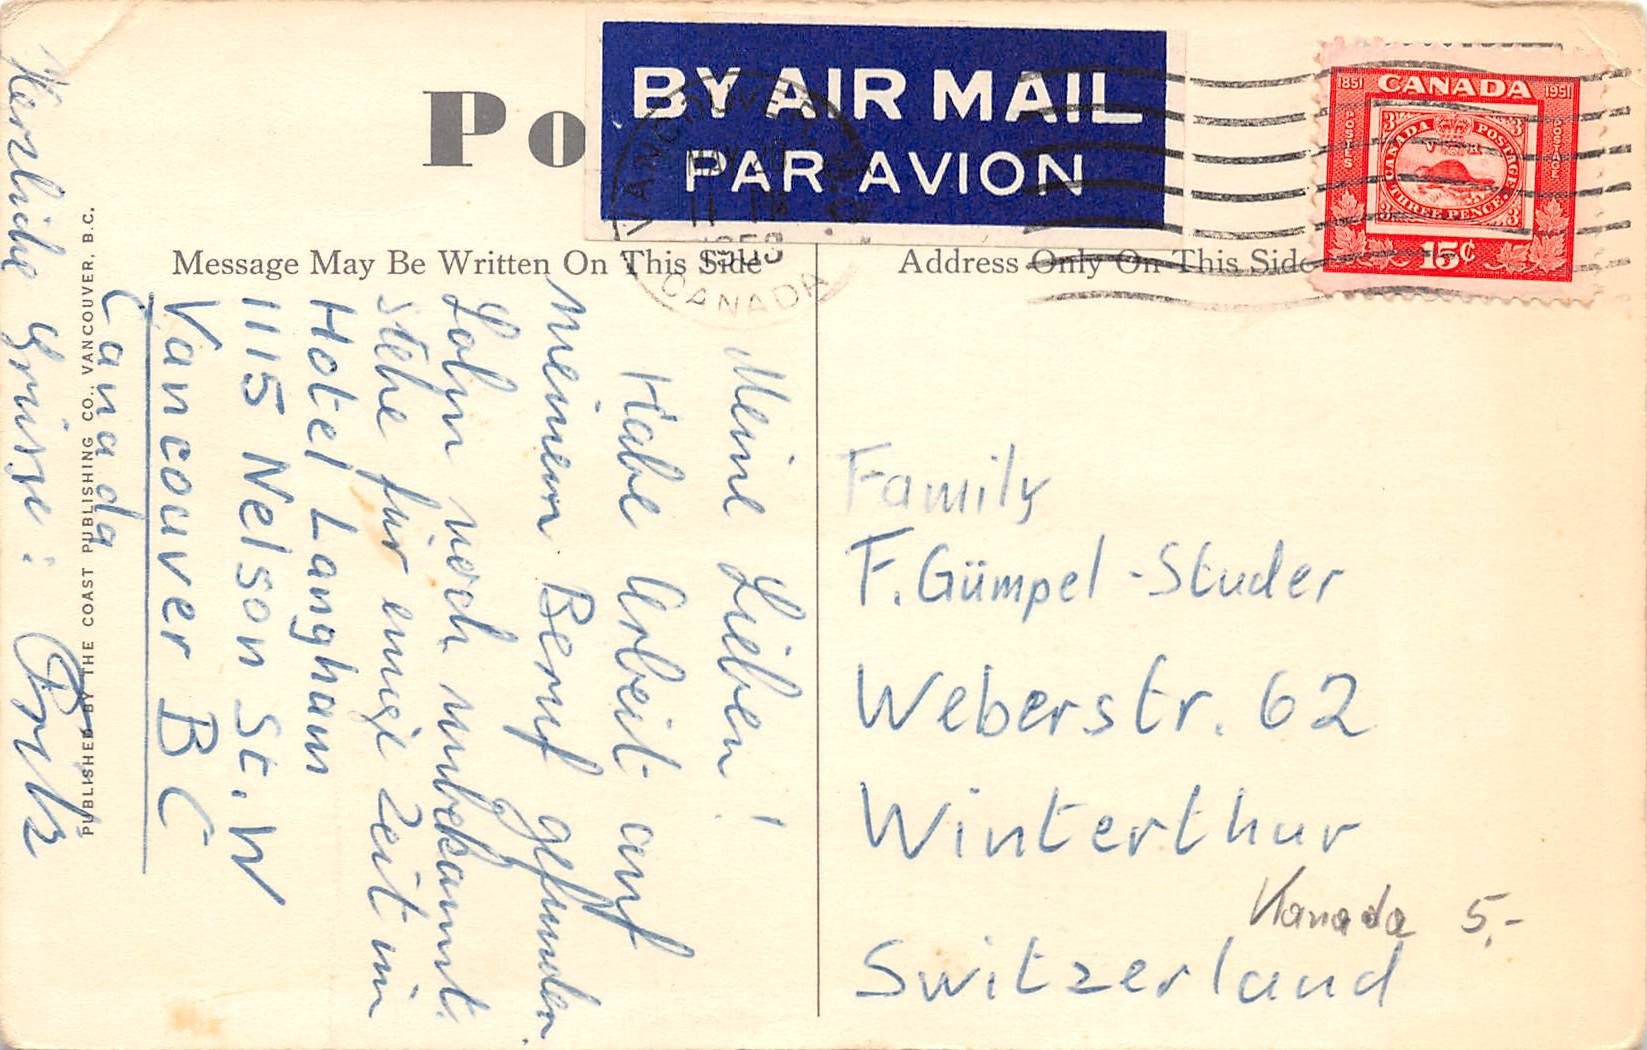 Po
BY AIR MAIL
PAR AVION
VANCOUVER
1953
CANADA
1851 CANADA 1951
POSTES POSTAGE
3 3
CANADA POSTAGE
V R
THREE PENCE
3 3
15¢
Message May Be Written On This Side
Address Only On This Side
Meine Lieben!
Habe Arbeit auf
meinem Beruf gefunden.
Lohn noch unbekannt.
stehe für einige Zeit im
Hotel Langham
1115 Nelson St. W
Vancouver BC
Canada
Herzliche Grüsse:
PUBLISHED BY THE COAST PUBLISHING CO., VANCOUVER, B.C.
Family
F. Gümpel-Studer
Weberstr. 62
Winterthur
Kanada 5,-
Switzerland